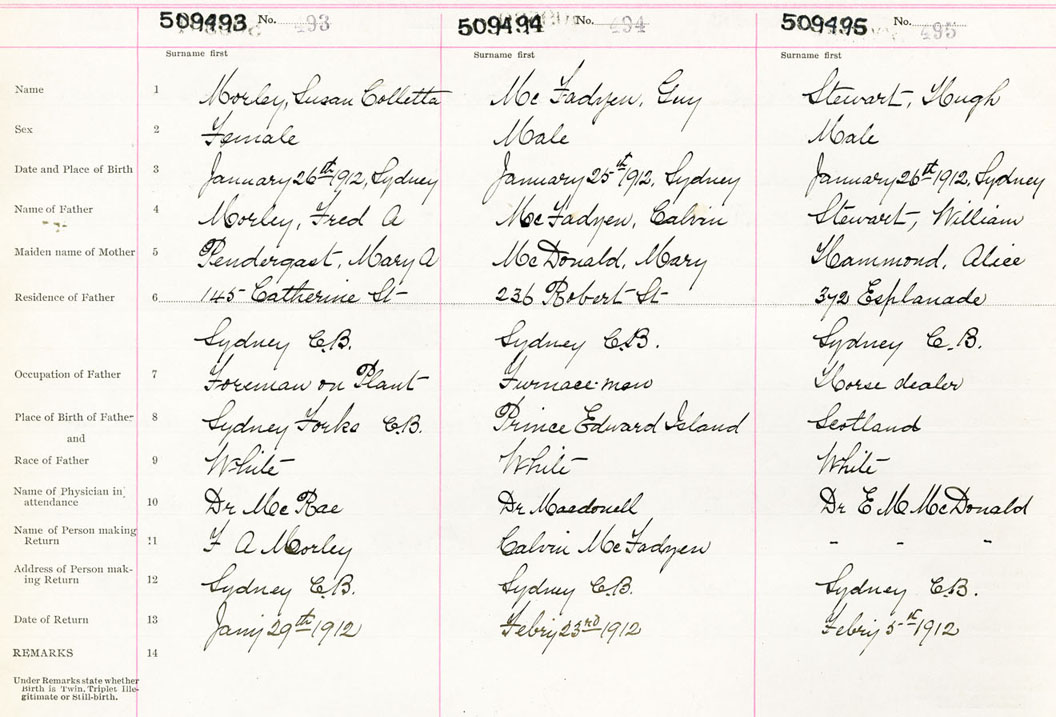 509493 No. 493 509494 No. 494 509495 No. 495
Surname first Surname first Surname first
Name 1 Morley, Susan Colletta Mc Fadyen, Guy Stewart, Hugh
Sex 2 Female Male Male
Date and Place of Birth 3 January 26th 1912, Sydney January 25th 1912, Sydney January 26th 1912, Sydney
Name of Father 4 Morley, Fred A McFadyen, Calvin Stewart, William
Maiden name of Mother 5 Pendergast, Mary A McDonald, Mary Hammond, Alice
Residence of Father 6 145 Catherine St 236 Robert St 372 Esplanade
Sydney C.B. Sydney C.B. Sydney C.B.
Occupation of Father 7 Foreman on Plant Furnace-man Horse dealer
Place of Birth of Father 8 Sydney Forks C.B. Prince Edward Island Scotland
and
Race of Father 9 White White White
Name of Physician in
attendance 10 Dr McRae Dr Macdonell Dr E M McDonald
Name of Person making
Return 11 F A Morley Calvin McFadyen - - -
Address of Person mak-
ing Return 12 Sydney C.B. Sydney C.B. Sydney C.B.
Date of Return 13 Jany 29th 1912 Febry 23rd 1912 Febry 5th 1912
REMARKS 14
Under Remarks state whether
Birth is Twin, Triplet Ille-
gitimate or Still-birth.